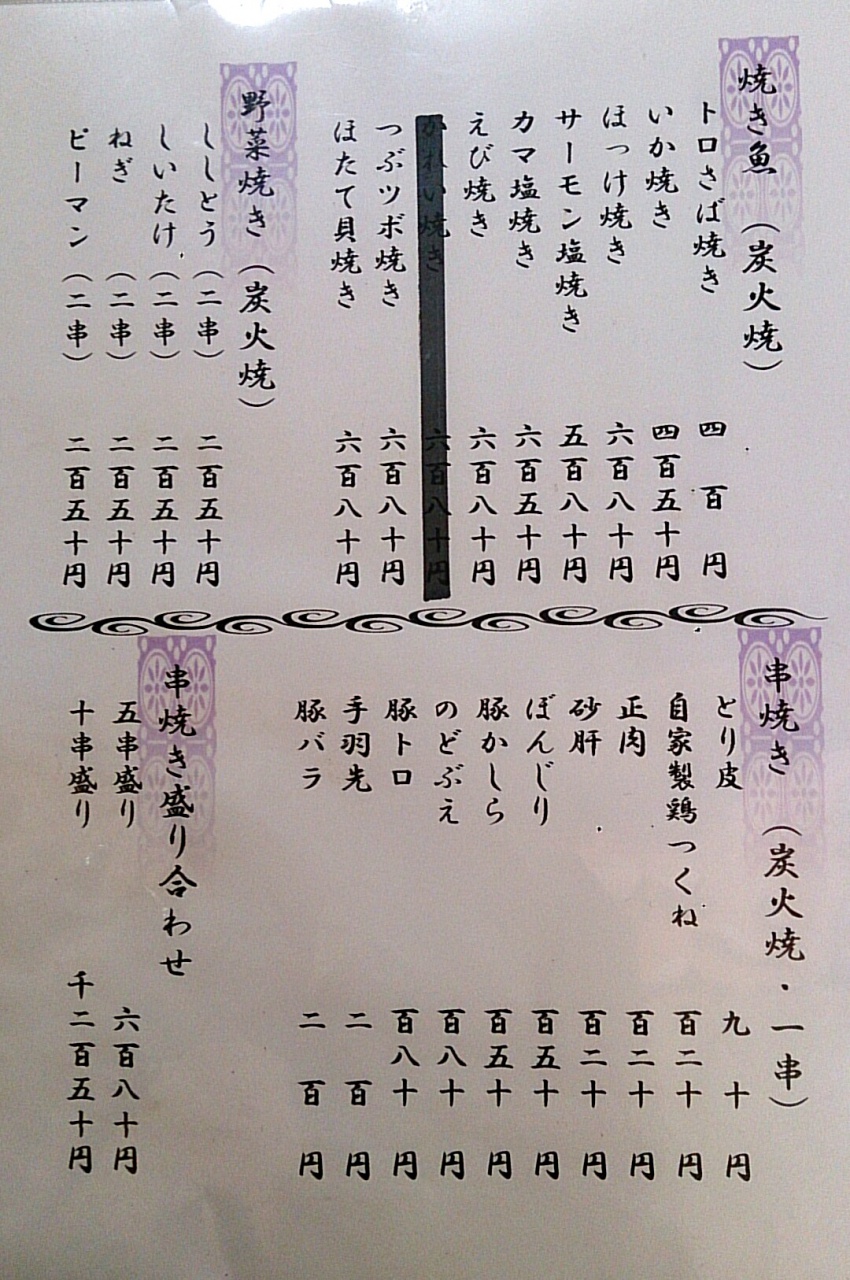 焼き魚（炭火焼）
トロさば焼き 四百円
いか焼き 四百五十円
ほっけ焼き 六百八十円
サーモン塩焼き 五百八十円
カマ塩焼き 六百五十円
えび焼き 六百八十円
かれい焼き 六百八十円
つぶツボ焼き 六百八十円
ほたて貝焼き 六百八十円
野菜焼き（炭火焼）
ししとう（二串） 二百五十円
しいたけ（二串） 二百五十円
ねぎ（二串） 二百五十円
ピーマン（二串） 二百五十円
串焼き（炭火焼・一串）
とり皮 九十円
自家製鶏つくね 百二十円
正肉 百二十円
砂肝 百二十円
ぼんじり 百五十円
豚かしら 百五十円
のどぶえ 百八十円
豚トロ 百八十円
手羽先 二百円
豚バラ 二百円
串焼き盛り合わせ
五串盛り 六百八十円
十串盛り 千二百五十円